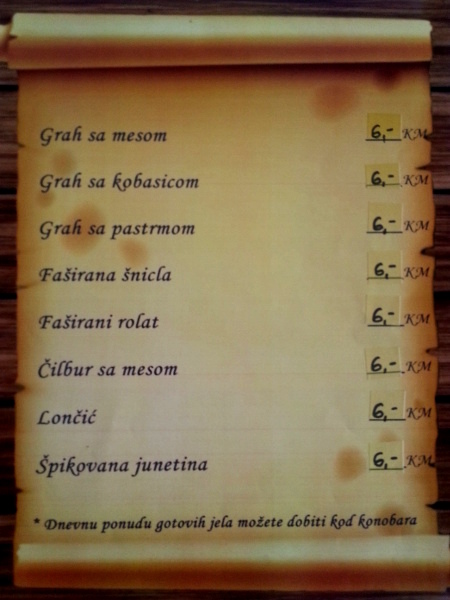 Grah sa mesom 6,- KM
Grah sa kobasicom 6,- KM
Grah sa pastrmom 6,- KM
Faširana šnicla 6,- KM
Faširani rolat 6,- KM
Čilbur sa mesom 6,- KM
Lončić 6,- KM
Špikovana junetina 6,- KM
* Dnevnu ponudu gotovih jela možete dobiti kod konobara